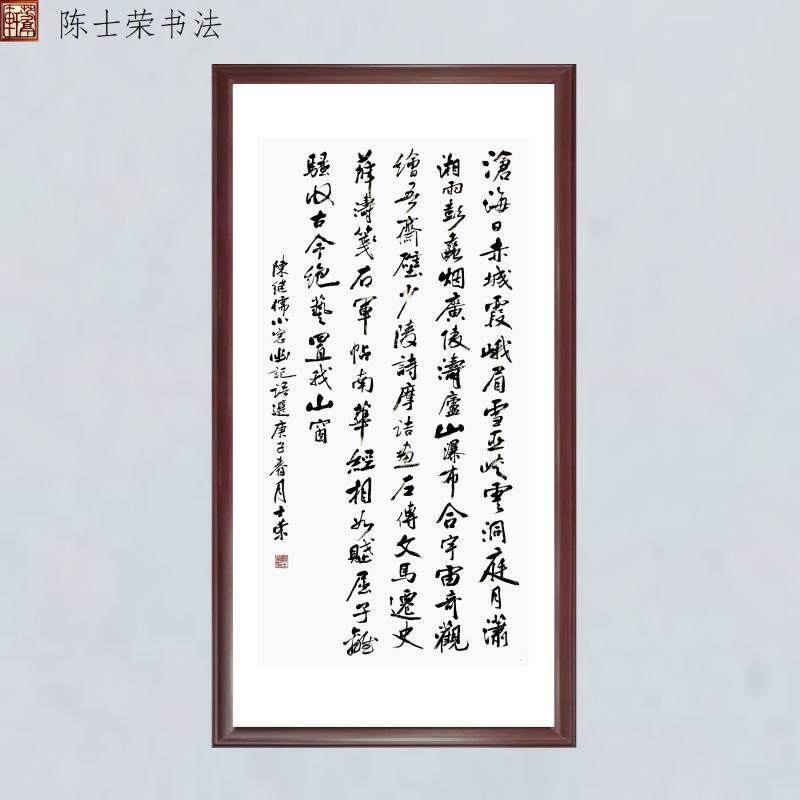 陈士荣书法
滄海日赤城霞峨眉雪巫峽雲洞庭月瀟
湘雨彭蠡烟廣陵濤廬山瀑布合宇宙奇觀
繪吾齋壁少陵詩摩詰畫左傳文馬遷史
薛濤箋右軍帖南華經相如賦屈子離
騷收古今絶藝置我山窗
陳继儒小窓幽記語選庚子春月士荣